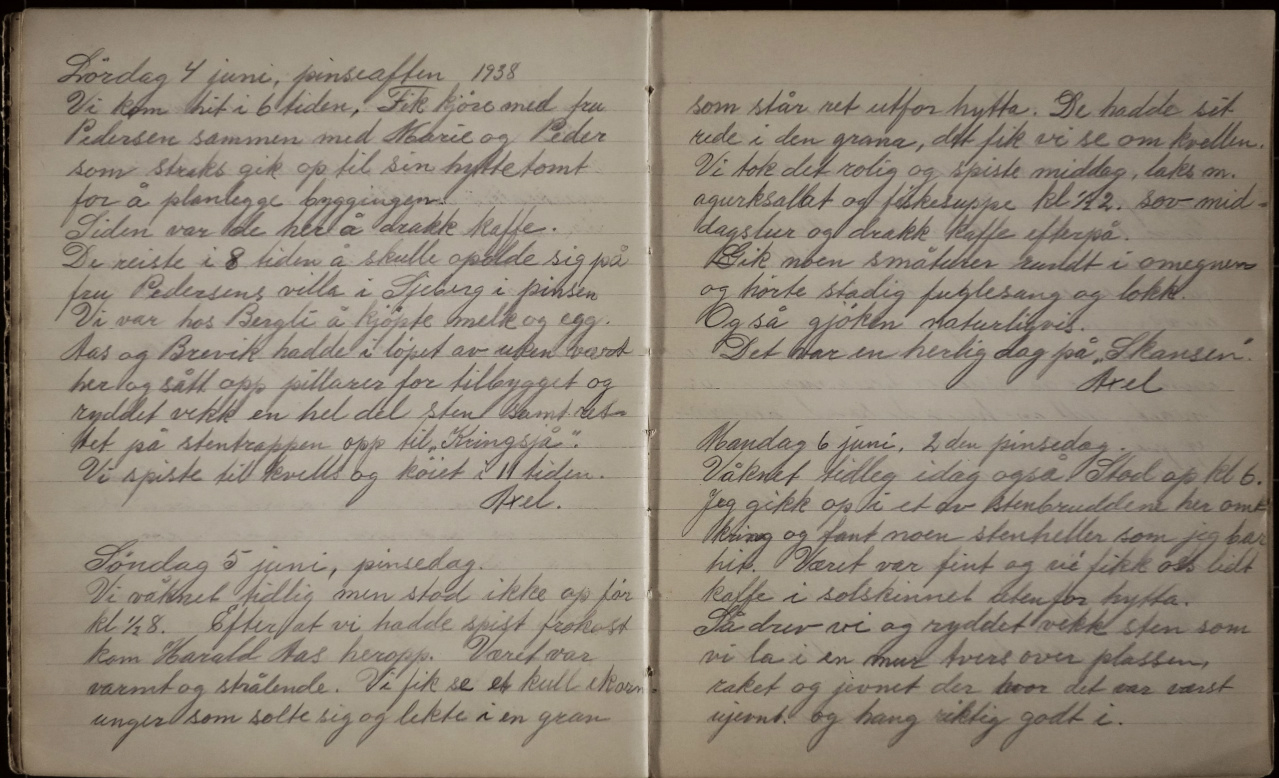 Lørdag 4 juni, pinseaften 1938
Vi kom hit i 6 tiden, Fik kjøre med fru
Pedersen sammen med Marie og Peder
som straks gik op til sin hyttetomt
for å planlegge byggingen.
Siden var de her å drakk kaffe.
De reiste i 8 tiden å skulle opolde sig på
fru Pedersens villa i Sjeberg i pinsen
Vi var hos Bergli å kjøpte melk og egg.
Aas og Brevik hadde i løpet av uken vært
her og sått opp pillarer for tilbygget og
ryddet vekk en hel del sten samt ret-
tet på stentrappen opp til „Kringsjå".
Vi spiste til kvells og køiet i 11 tiden.
Axel.
Søndag 5 juni, pinsedag.
Vi våknet tidlig men stod ikke op før
kl ½ 8. Efter at vi hadde spist frokost
kom Harald Aas heropp. Været var
varmt og strålende. Vi fik se et kull ekorn-
unger som solte sig og lekte i en gran
som står ret utfor hytta. De hadde sit
rede i den grana, det fik vi se om kvellen.
Vi tok det rolig og spiste middag, laks m.
agurksallat og fiskesuppe kl ½ 2. sov mid-
dagslur og drakk kaffe efterpå.
Gik noen småturer rundt i omegnen
og hørte stadig fuglesang og lokk.
Også gjøken naturligvis.
Det var en herlig dag på „Skansen".
Axel
Mandag 6 juni, 2den pinsedag.
Våknet tidleg idag også Stod op kl 6.
Jeg gikk op i et av stenbruddene her omt
kring og fant noen stenheller som jeg bar
hit. Været var fint og vi fikk oss lidt
kaffe i solskinnet utenfor hytta.
Så drev vi og ryddet vekk sten som
vi la i en mur tvers over plassen,
raket og jevnet der hvor det var værst
ujevnt. og hang riktig godt i.